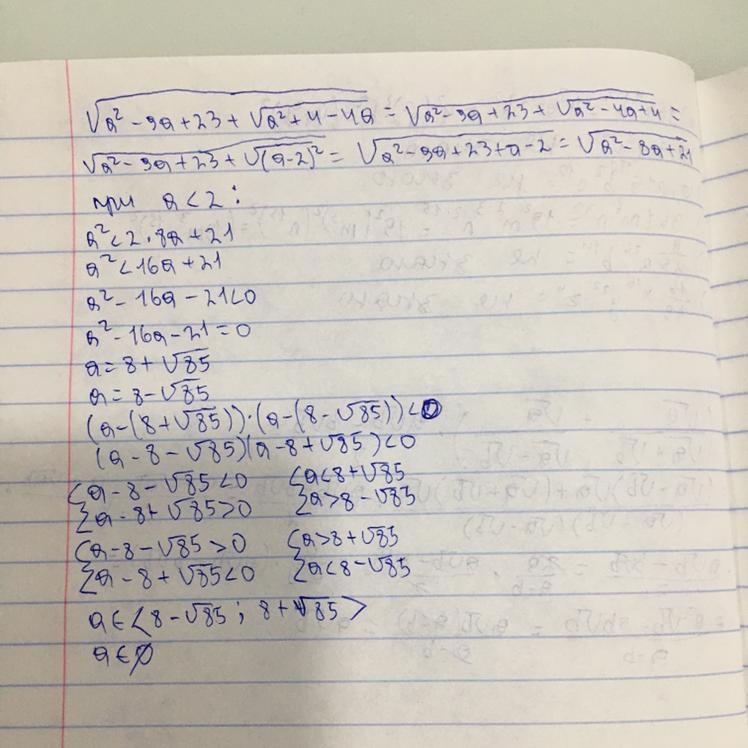 √(a² - 9a + 23 + √(a² + 4 - 4a)) = √(a² - 9a + 23 + √(a² - 4a + 4)) =
√(a² - 9a + 23 + √(a-2)²) = √(a² - 9a + 23 + a - 2) = √(a² - 8a + 21)
при a < 2 :
a² < 2 · 8a + 21
a² < 16a + 21
a² - 16a - 21 < 0
a² - 16a - 21 = 0
a = 8 + √85
a = 8 - √85
(a - (8 + √85)) · (a - (8 - √85)) < 0
(a - 8 - √85)(a - 8 + √85) < 0
{a - 8 - √85 < 0 {a < 8 + √85
{a - 8 + √85 > 0 {a > 8 - √85
{a - 8 - √85 > 0 {a > 8 + √85
{a - 8 + √85 < 0 {a < 8 - √85
a ∈ < 8 - √85 ; 8 + √85 >
a ∈ ∅